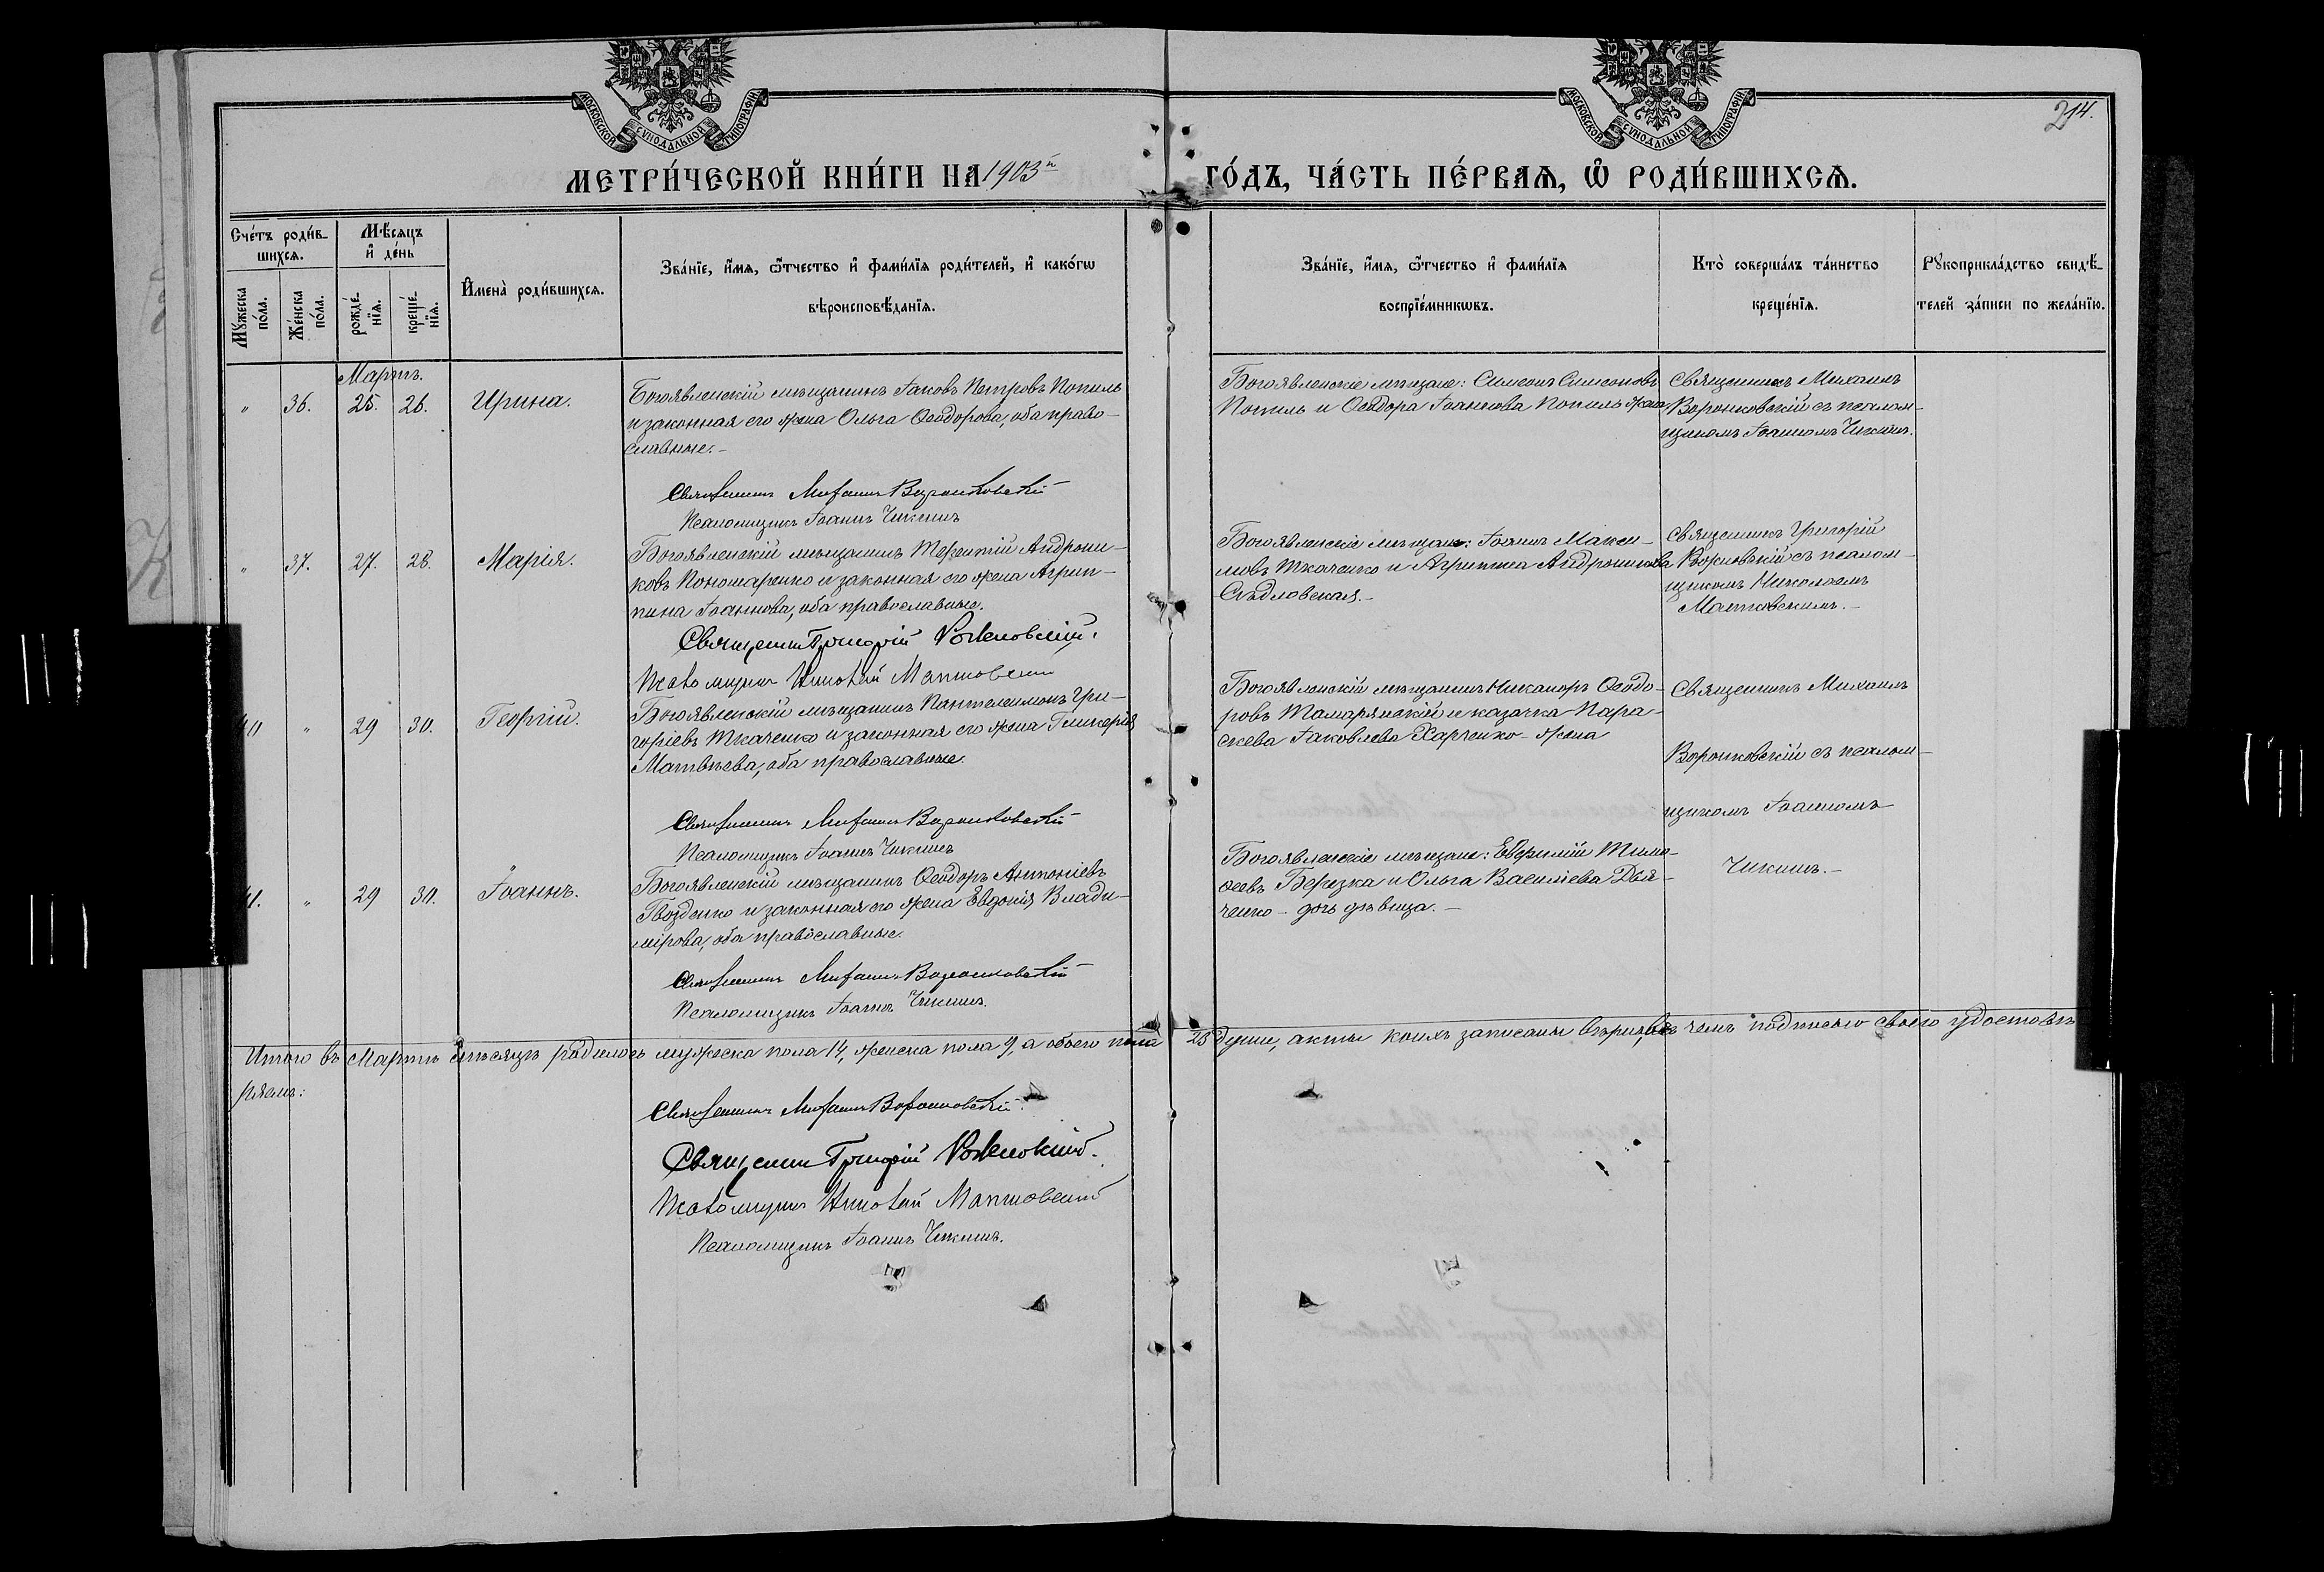 МОСКОВСКОЙ СѴНОДАЛЬНОЙ ТИПОГРАФІИ
МОСКОВСКОЙ СѴНОДАЛЬНОЙ ТИПОГРАФІИ
214.
МЕТРИ́ЧЕСКОЙ КНИ́ГИ НА 1903й
ГО́ДЪ, ЧА́СТЬ ПЕ́РВАѦ, Ѡ РОДИ́ВШИХСѦ.
Сче́тъ роди́в-
шихсѧ.
Мꙋ́жеска
по́ла.
Же́нска
по́ла.
Мѣ́сѧцъ
и҆ де́нь
рожде́-
нїѧ.
креще́-
нїѧ.
И҆мена̀ роди́вшихсѧ.
Зва́нїе, и҆́мѧ, ѻ҆́тчество и҆ фами́лїѧ роди́телей, и҆ како́гѡ
вѣроисповѣ́данїѧ.
Зва́нїе, и҆́мѧ, ѻ҆́тчество и҆ фами́лїѧ
воспрїе́мникѡвъ.
Кто̀ соверша́лъ та́инство
креще́нїѧ.
Рꙋкоприкла́дство свидѣ́-
телей за́писи по жела́нїю.
Мартъ.
" 36. 25. 26. Ирина.
Богоявленскій мѣщанинъ Іаковъ Петровъ Попиль
и законная его жена Ольга Ѳеодорова, оба право-
славные.-
Священникъ Михаилъ Воронковскій
Псаломщикъ Іоаннъ Чикинъ
Богоявленскіе мѣщане: Симеонъ Симеоновъ
Попиль и Ѳеодора Іоаннова Попиль жена
Священникъ Михаилъ
Воронковскій съ псалом-
щикомъ Іоанномъ Чикинъ.
" 37. 27. 28. Марія.
Богоявленскій мѣщанинъ Терентій Андрони-
ковъ Пономаренко и законная его жена Агрип-
пина Іоаннова, оба православные.
Священникъ Григорій
Псаломщикъ Николай
Богоявленскіе мѣщане: Іоаннъ Макси-
мовъ Ткаченко и Агриппина Андроникова
Сѣдловская.-
Священникъ Григорій
съ псалом-
щикомъ Николаемъ
40 " 29 30. Георгій.
Богоявленскій мѣщанинъ Пантелеимонъ Гри-
горіевъ Ткаченко и законная его жена Гликерія
Матвѣева, оба православные.
Священникъ Михаилъ Воронковскій
Псаломщикъ Іоаннъ Чикинъ
Богоявленскій мѣщанинъ Никаноръ Ѳеодо-
ровъ Тамарянскій и казачка Пара-
скева Іаковлева Харченко - жена
Священникъ Михаилъ
Воронковскій съ псалом-
щикомъ Іоанномъ
Чикинъ.-
41. " 29 30. Іоаннъ.
Богоявленскій мѣщанинъ Ѳеодоръ Антоніевъ
Гвозденко и законная его жена Евдокія Влади-
мірова, оба православные.
Священникъ Михаилъ Воронковскій
Псаломщикъ Іоаннъ Чикинъ.
Богоявленскіе мѣщане: Евѳимій Тимо-
ѳеевъ Березка и Ольга Василіева Дья-
ченко - дочь дѣвица.-
Итого въ Мартѣ мѣсяцѣ родилось мужеска пола 14, женска пола 9, а обоего пола 23 души, акты коихъ записаны вѣрно, въ чемъ подписью своею удостовѣ-
ряемъ:
Священникъ Михаилъ Воронковскій.
Священникъ Григорій
Псаломщикъ Николай
Псаломщикъ Іоаннъ Чикинъ.